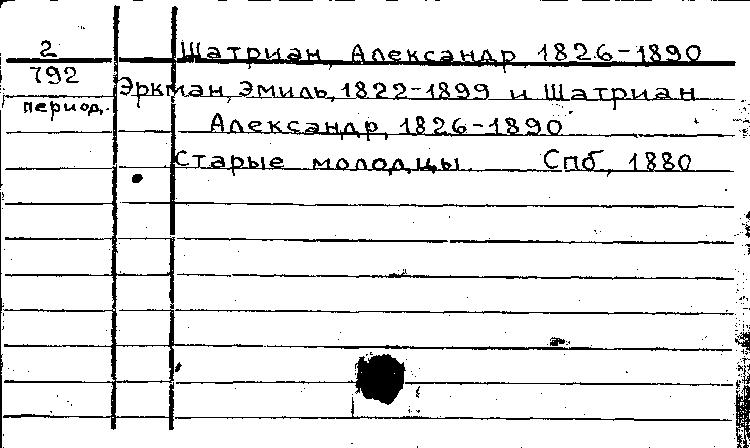 2 Шатриан, Александр, 1826-1890
792 Эркман, Эмиль, 1822-1899 и Шатриан
период. Александр, 1826-1890
Старые молодцы. Спб., 1880